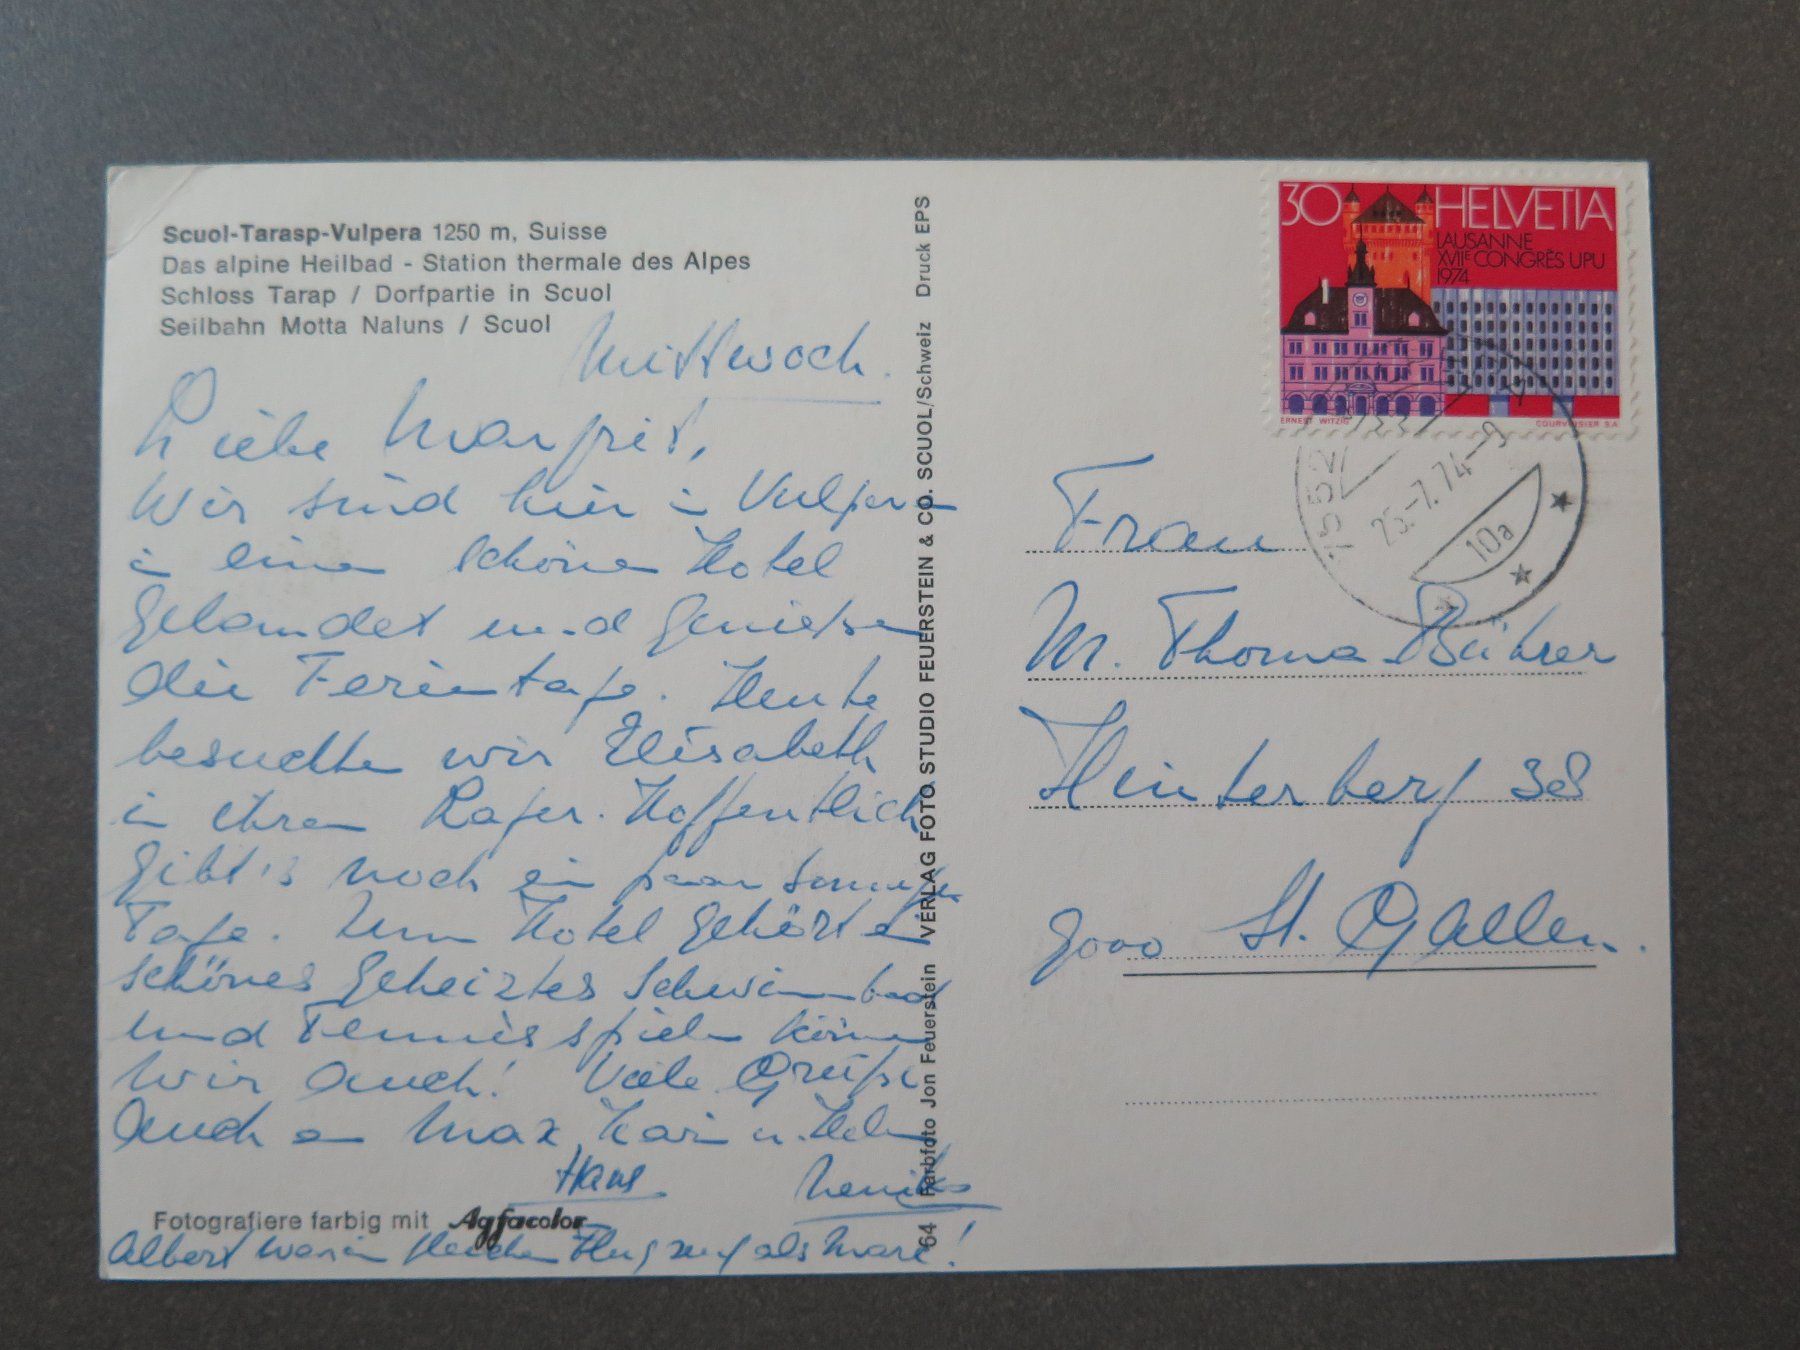 Scuol-Tarasp-Vulpera 1250 m, Suisse
Das alpine Heilbad - Station thermale des Alpes
Schloss Tarap / Dorfpartie in Scuol
Seilbahn Motta Naluns / Scuol
Mittwoch.
Liebe
Wir sind hier in Vulpera
in einem schönen Hotel
gelandet und geniessen
die Ferientage. Heute
besuchten wir Elisabeth
in ihrem Lager. Hoffentlich
gibt's noch ein paar sonnige
Tage. Zum Hotel gehört ein
schönes geheiztes Schwimmbad
und Tennis spielen können
wir auch! Viele Grüsse
auch an Max, Karin u.
Hans
Fotografiere farbig mit Agfacolor
Albert war im gleichen Flugzeug als Marc!
64 Farbfoto Jon Feuerstein VERLAG FOTO STUDIO FEUERSTEIN & CO. SCUOL/Schweiz Druck EPS
30 HELVETIA
LAUSANNE
XVIIE CONGRÈS UPU
1974
ERNEST WITZIG COURVOISIER S.A.
7552
25.-7.74-9
10a
Frau
M. Thoma-Bührer
Hinterberg 38
9000 St. Gallen.